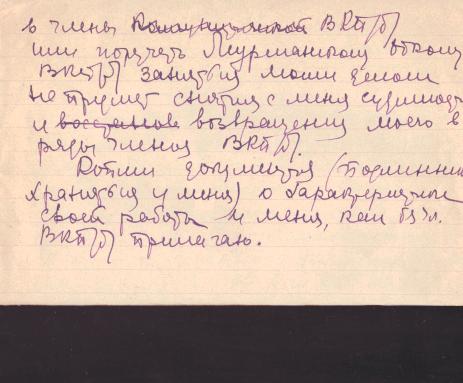 в члены Коммунистической ВКП(б)
или поручить Мурманскому обкому
ВКП(б) заняться моим делом
на предмет снятия с меня судимости
и восстановле возвращения моего в
ряды членов ВКП(б).
Копии документов (подлинники
хранятся у меня) о характеристике
своей работы и меня, как б/чл.
ВКП(б) прилагаю.